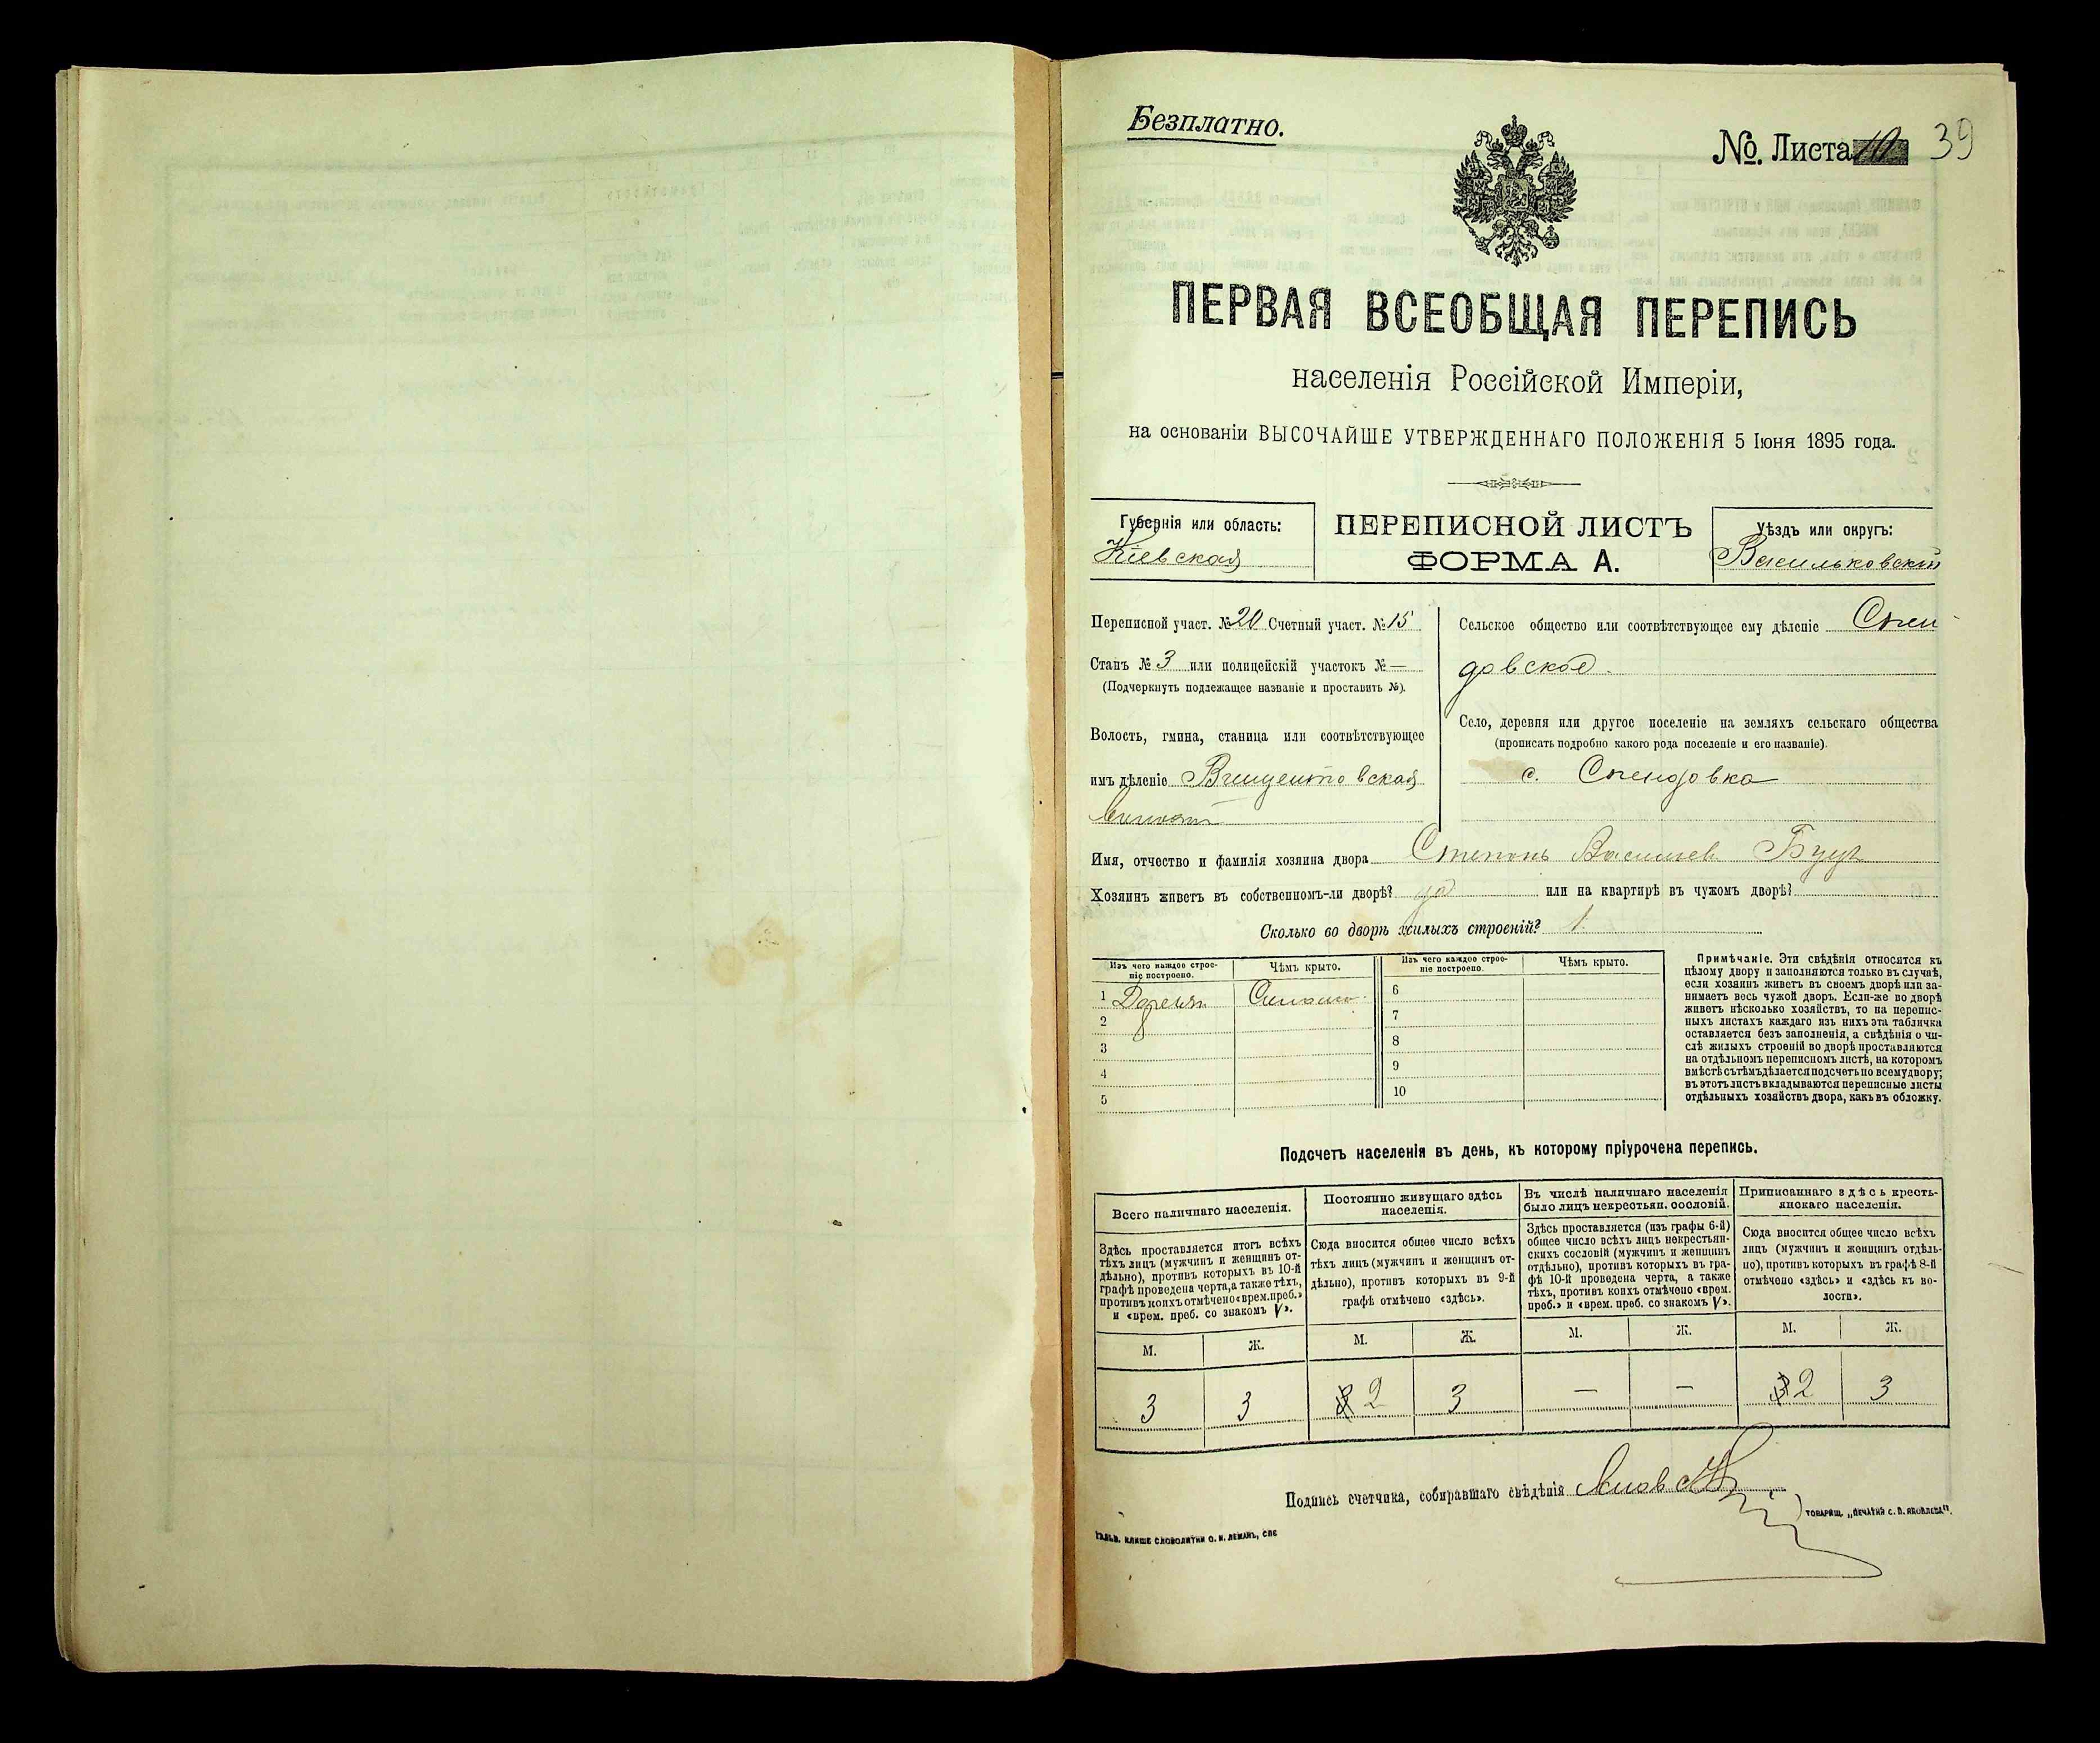 Безплатно.
№. Листа 10 39
ПЕРВАЯ ВСЕОБЩАЯ ПЕРЕПИСЬ
населенія Россійской Имперіи,
на основаніи ВЫСОЧАЙШЕ УТВЕРЖДЕННАГО ПОЛОЖЕНІЯ 5 Іюня 1895 года.
Губернія или область:
Кіевская
ПЕРЕПИСНОЙ ЛИСТЪ
ФОРМА А.
Уѣздъ или округъ:
Васильковскій
Переписной участ. № 20 Счетный участ. № 15
Станъ № 3 или полицейскій участокъ № —
(Подчеркнуть подлежащее названіе и проставить №).
Волость, гмина, станица или соотвѣтствующее
имъ дѣленіе Винцентовская
Сельское общество или соотвѣтствующее ему дѣленіе Спен
довское.
Село, деревня или другое поселеніе на земляхъ сельскаго общества
(прописать подробно какого рода поселеніе и его названіе).
с. Спендовка
Имя, отчество и фамилія хозяина двора Степанъ Васильев
Хозяинъ живетъ въ собственномъ-ли дворѣ? да или на квартирѣ въ чужомъ дворѣ?
Сколько во дворѣ жилыхъ строеній? 1.
Изъ чего каждое строе-
ніе построено.
Чѣмъ крыто.
Изъ чего каждое строе-
ніе построено.
Чѣмъ крыто.
1 6
2 7
3 8
4 9
5 10
Примѣчаніе. Эти свѣдѣнія относятся къ
цѣлому двору и заполняются только въ случаѣ,
если хозяинъ живетъ въ своемъ дворѣ или за-
нимаетъ весь чужой дворъ. Если-же во дворѣ
живетъ нѣсколько хозяйствъ, то на перепис-
ныхъ листахъ каждаго изъ нихъ эта табличка
оставляется безъ заполненія, а свѣдѣнія о чи-
слѣ жилыхъ строеній во дворѣ проставляются
на отдѣльномъ переписномъ листѣ, на которомъ
вмѣстѣ съ тѣмъ дѣлается подсчетъ по всему двору;
въ этотъ листъ вкладываются переписные листы
отдѣльныхъ хозяйствъ двора, какъ въ обложку.
Подсчетъ населенія въ день, къ которому пріурочена перепись.
Всего наличнаго населенія.
Здѣсь проставляется итогъ всѣхъ
тѣхъ лицъ (мужчинъ и женщинъ от-
дѣльно), противъ которыхъ въ 10-й
графѣ проведена черта, а также тѣхъ,
противъ коихъ отмѣчено «врем. преб.»
и «врем. преб. со знакомъ V».
М. Ж.
3 3
Постоянно живущаго здѣсь
населенія.
Сюда вносится общее число всѣхъ
тѣхъ лицъ (мужчинъ и женщинъ от-
дѣльно), противъ которыхъ въ 9-й
графѣ отмѣчено «здѣсь».
М. Ж.
3 2 3
Въ числѣ наличнаго населенія
было лицъ некрестьян. сословій.
Здѣсь проставляется (изъ графы 6-й)
общее число всѣхъ лицъ некрестьян-
скихъ сословій (мужчинъ и женщинъ
отдѣльно), противъ которыхъ въ гра-
фѣ 10-й проведена черта, а также
тѣхъ, противъ коихъ отмѣчено «врем.
преб.» и «врем. преб. со знакомъ V».
М. Ж.
— —
Приписаннаго здѣсь кресть-
янскаго населенія.
Сюда вносится общее число всѣхъ
лицъ (мужчинъ и женщинъ отдѣль-
но), противъ которыхъ въ графѣ 8-й
отмѣчено «здѣсь» и «здѣсь къ во-
лости».
М. Ж.
3 2 3
Подпись счетчика, собиравшаго свѣдѣнія
ТОВАРИЩ. „ПЕЧАТНЯ С. П. ЯКОВЛЕВА".
ГАЛЬВ. КЛИШЕ СЛОВОЛИТНИ О. И. ЛЕМАНЪ, СПБ